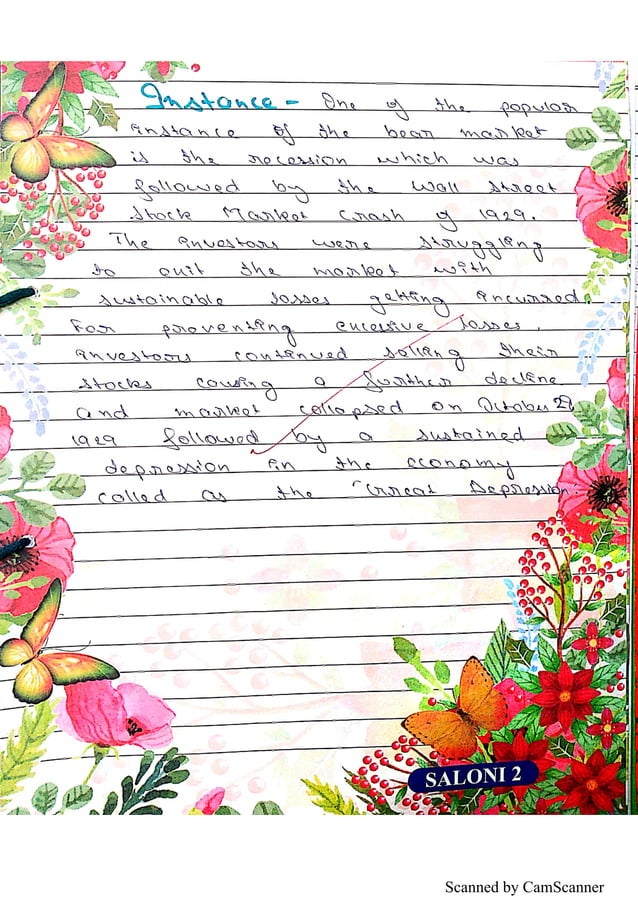 Instance - One of the popular
instance of the bear market
is the recession which was
followed by the Wall Street
Stock Market Crash of 1929.
The investors were struggling
to quit the market with
sustainable losses getting incurred.
For proventing excessive losses,
investors continued selling their
stocks causing a further decline
and market collapsed on October 29,
1929 followed by a sustained
depression in the economy
called as the "Great Depression.
SALONI 2
Scanned by CamScanner